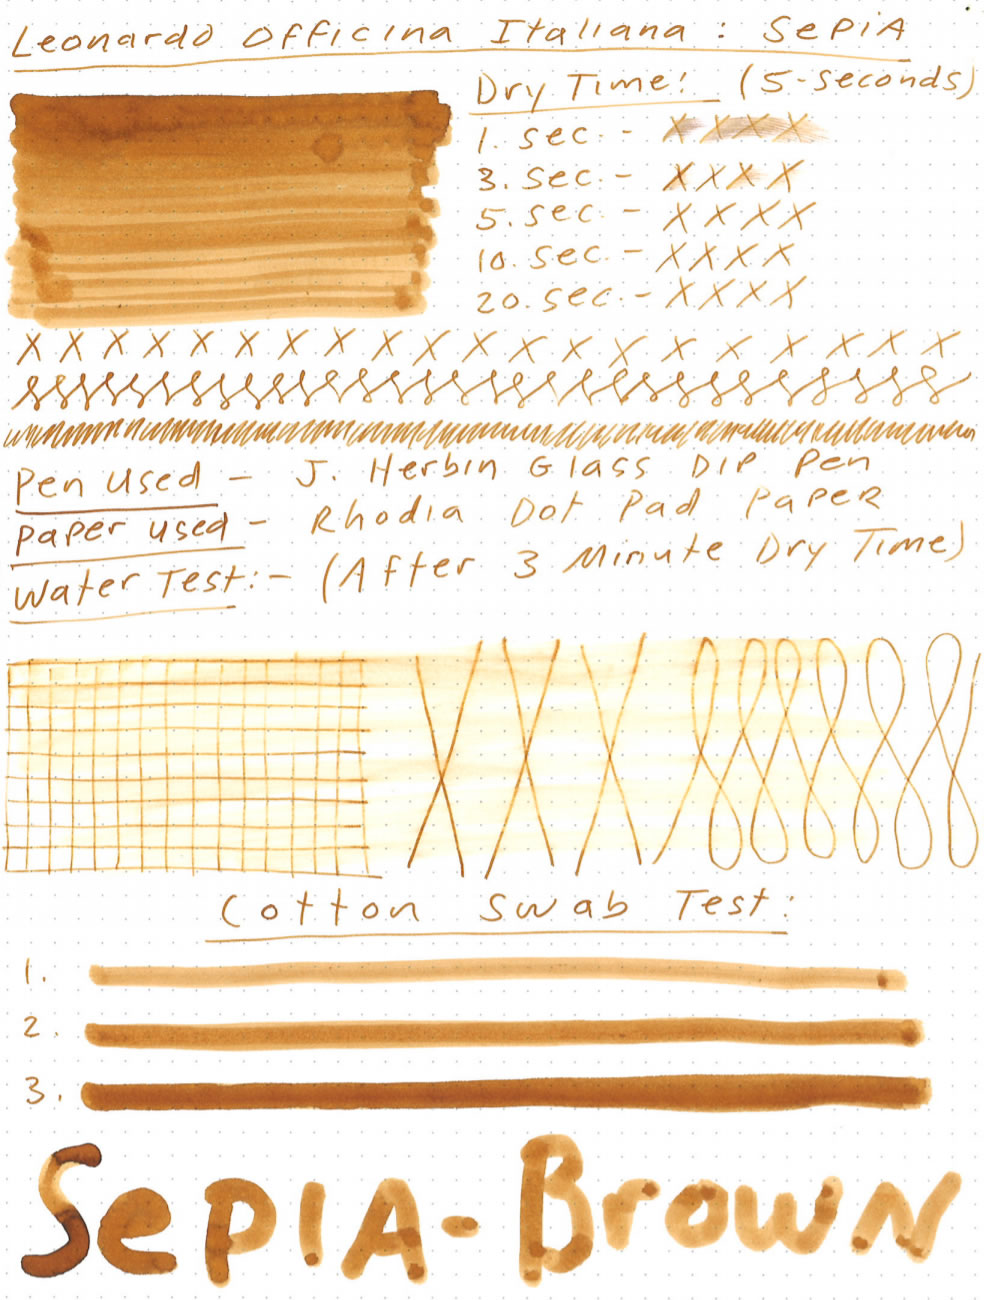 Leonardo Officina Italiana : SePiA
Dry Time! (5-seconds)
1. sec. - x x x x
3. sec. - x x x x
5. sec. - x x x x
10. sec. - x x x x
20. sec. - x x x x
x x x x x x x x x x x x x x x x x x x x
Pen Used - J. Herbin Glass Dip Pen
Paper used - Rhodia Dot Pad Paper
Water Test:- (After 3 Minute Dry Time)
Cotton Swab Test:
1.
2.
3.
SePIA-Brown